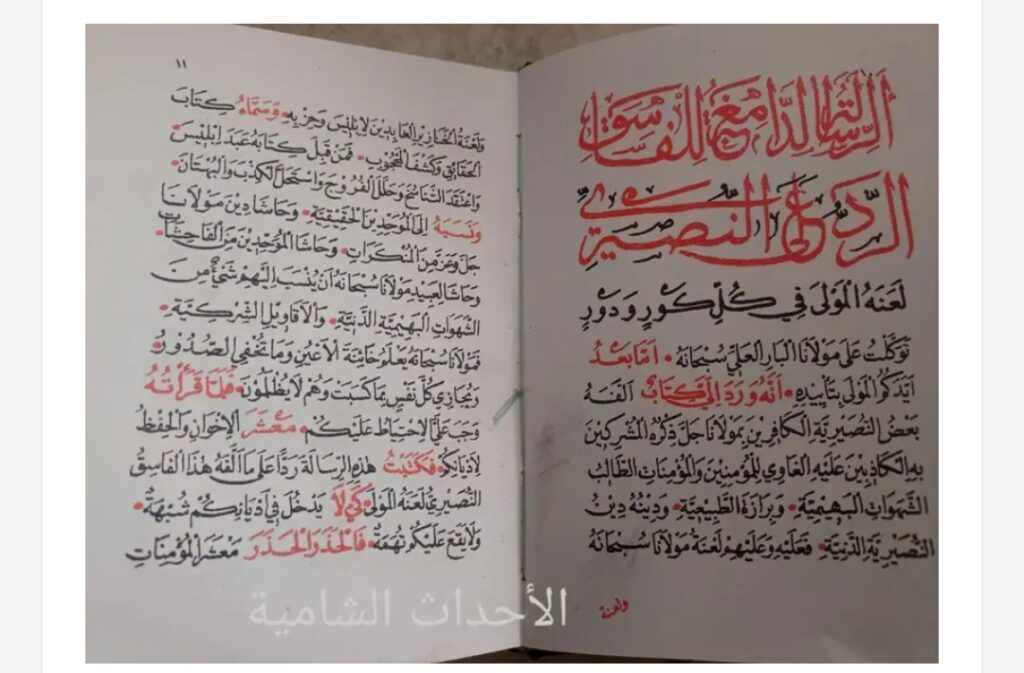 الرسالة الدامغة للفاسق
الرد على النصيري
لَعَنَهُ المَوْلَى فِي كُلِّ كَوْرٍ وَدَوْرٍ
تَوَكَّلْتُ عَلَى مَوْلَانَا البَارِ العَلِيِّ سُبْحَانَهُ • أَمَّا بَعْدُ
أَيَّدَكُمُ المَوْلَى بِتَأْيِيدِهِ • أَنَّهُ وَرَدَ إِلَيَّ كِتَابٌ أَلَّفَهُ
بَعْضُ النُّصَيْرِيَّةِ الكَافِرِينَ بِمَوْلَانَا جَلَّ ذِكْرُهُ المُشْرِكِينَ
بِهِ الكَاذِبِينَ عَلَيْهِ الغَاوِي لِلْمُؤْمِنِينَ وَالمُؤْمِنَاتِ الطَّالِبُ
الشَّهَوَاتِ البَهِيمِيَّةِ • وَبِرَازَةَ الطَّبِيعِيَّةِ • وَدِينُهُ دِينُ
النُّصَيْرِيَّةِ الدَّنِيَّةِ • فَعَلَيْهِ وَعَلَيْهِمْ لَعْنَةُ مَوْلَانَا سُبْحَانَهُ
ولعنة
١١
وَلَعْنَةُ الخَنَازِيرِ العَابِدِينَ لِإِبْلِيسَ وَحِزْبِهِ • وَسَمَّاهُ كِتَابَ
الحَقَائِقِ وَكَشْفِ المَحْجُوبِ • فَمَنْ قَبِلَ كِتَابَهُ عَبَدَ إِبْلِيسَ •
وَاعْتَقَدَ التَّنَاسُخَ وَحَلَّلَ الفُرُوجَ وَاسْتَحَلَّ الكَذِبَ وَالبُهْتَانَ •
وَنَسَبَهُ إِلَى المُوَحِّدِينَ الحَقِيقِيَّةِ • وَحَاشَا دِينَ مَوْلَانَا
جَلَّ وَعَزَّ مِنَ المُنْكَرَاتِ • وَحَاشَا المُوَحِّدِينَ مِنَ الفَاحِشَاتِ •
وَحَاشَا لِعَبِيدِ مَوْلَانَا سُبْحَانَهُ أَنْ يُنْسَبَ إِلَيْهِمْ شَيْءٌ مِنَ
الشَّهَوَاتِ البَهِيمِيَّةِ الدَّنِيَّةِ • وَالأَقَاوِيلِ الشِّرْكِيَّةِ •
فَمَوْلَانَا سُبْحَانَهُ يَعْلَمُ خَائِنَةَ الأَعْيُنِ وَمَا تُخْفِي الصُّدُورُ •
وَيُجَازِي كُلَّ نَفْسٍ بِمَا كَسَبَتْ وَهُمْ لَا يُظْلَمُونَ • فَلَمَّا قَرَأْتُهُ
وَجَبَ عَلَيَّ الاِحْتِيَاطُ عَلَيْكُمْ • مَعْشَرَ الإِخْوَانِ وَالحِفْظُ
لِأَدْيَانِكُمْ • فَكَتَبْتُ هَذِهِ الرِّسَالَةَ رَدًّا عَلَى مَا أَلَّفَهُ هَذَا الفَاسِقُ
النُّصَيْرِيُّ لَعَنَهُ المَوْلَى كَيْ لَا يَدْخُلَ فِي أَدْيَانِكُمْ شُبْهَةٌ •
وَلَا يَقَعَ عَلَيْكُمْ تُهَمَةٌ • فَالحَذَرَ الحَذَرَ مَعْشَرَ المُؤْمِنَاتِ
الأحداث الشامية